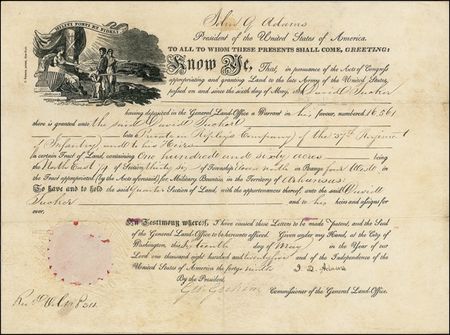 MILITI FORTI ET FIDELI
John Q. Adams
President of the United States of America.
TO ALL TO WHOM THESE PRESENTS SHALL COME, GREETING:
Know Ye, That, in pursuance of the Acts of Congress
appropriating and granting Land to the late Army of the United States,
passed on and since the sixth day of May, 1812,
having deposited in the General Land-Office a Warrant in his favour, numbered 16,561
there is granted unto the said
late Private in Company of the 37th Regiment
of Infantry and to his Heirs
a certain Tract of Land, containing One hundred and sixty acres being
the North East qr of Section thirty six of Township seven north in Range four West in the
Tract appropriated (by the Acts aforesaid) for Military Bounties, in the Territory of Arkansas:
To have and to hold the said Quarter Section of Land, with the appurtenances thereof, unto the said
and to his heirs and assigns for-
ever.
In Testimony whereof, I have caused these Letters to be made Patent, and the Seal
of the General Land-Office to be hereunto affixed. Given under my Hand, at the City of
Washington, this day of May in the Year of our
Lord one thousand eight hundred and twenty five and of the Independence of the
United States of America the forty ninth J. Q. Adams
By the President,
Geo: Graham Commissioner of the General Land-Office.